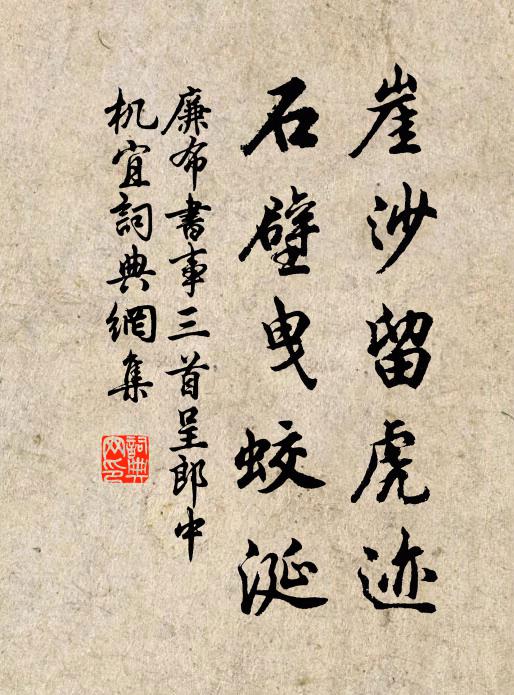 崖沙留虎迹
石壁曳蛟涎
廉布書事三首呈郎中
机宜詞典網集
詞典網印